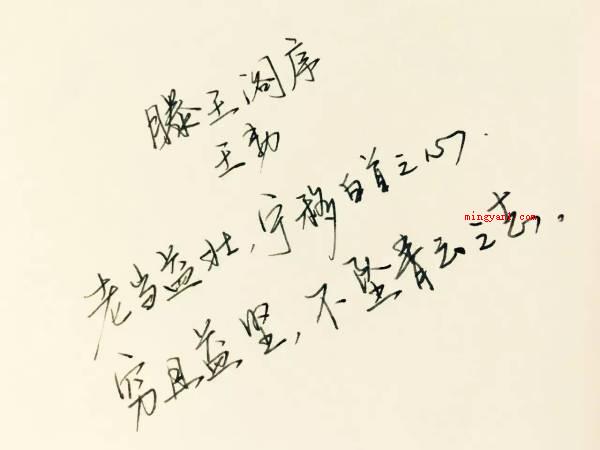 滕王阁序
王勃
老当益壮,宁移白首之心.
穷且益坚,不坠青云之志.
mingyanw.com